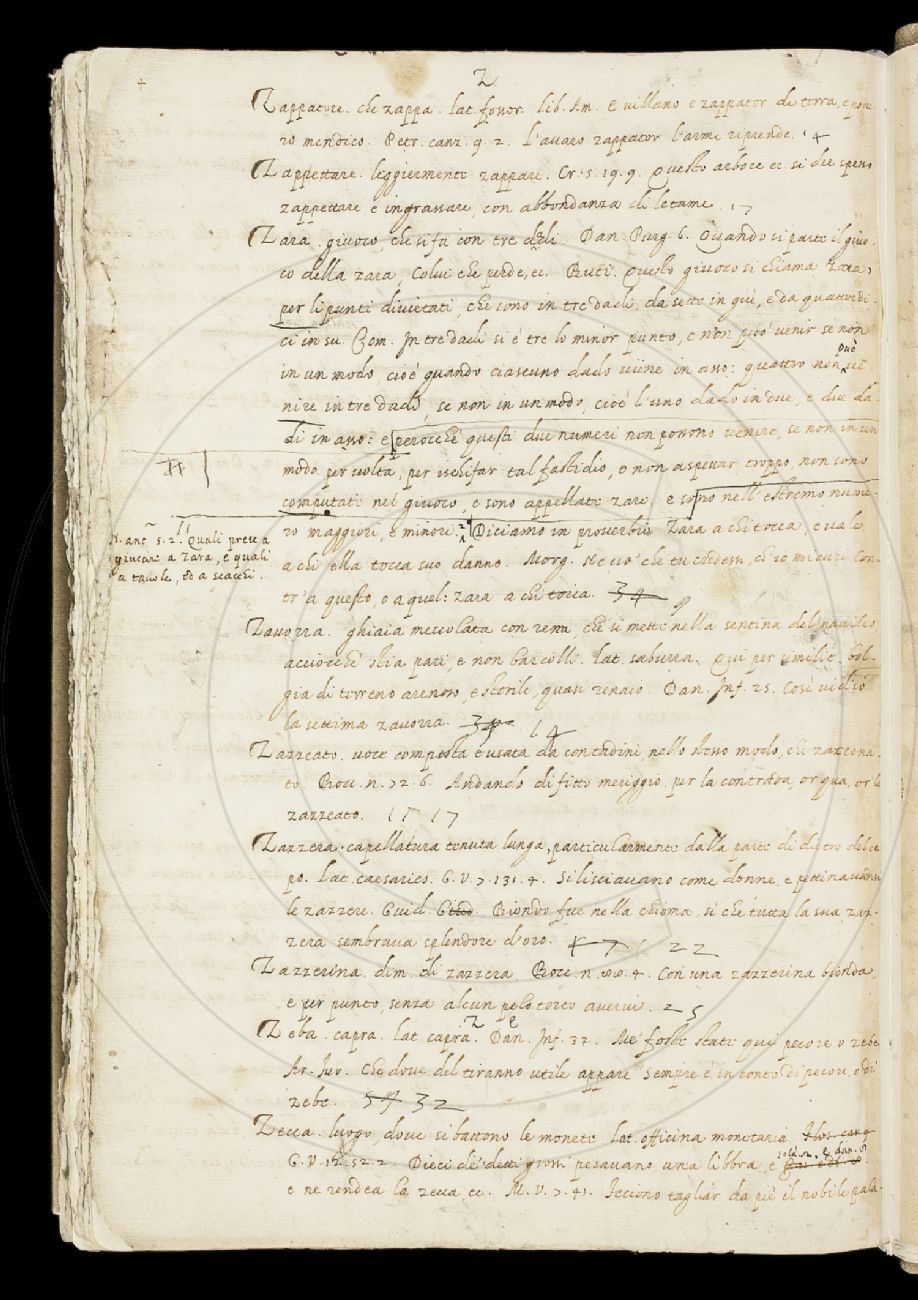 Z
Zappatore. che zappa. lat. fossor. lib. Am. E villano e zappator di terra, e pove
ro mendico. Petr. canz. 9. 2. l'auaro zappator l'arme riprende. 4
Zappettare. leggiermente zappare. Cr. 5. 19. 9. Questo arbore ec. si dee spesso
zappettare e ingrassare, con abbondanza di letame. 17
Zara. giuoco che si fa con tre dadi. Dan. Purg. 6. Quando si parte il giuo-
co della zara, Colui che perde, ec. Buti. Questo giuoco si chiama zara,
per li punti divietati, che sono in tre dadi, da sette in giù, e da quattordi-
ci in su. Com. In tre dadi si è tre lo minor punto, e non può venir se non
in un modo, cioè quando ciascuno dado viene in asso: quattro non può ve-
nire in tre dadi, se non in un modo, cioè l'uno dado in due, e due da-
di in asso: e perocchè questi due numeri non possono venire, se non in un
modo per volta, per ischifar tal fastidio, e non aspettar troppo, non sono
computati nel giuoco, e sono appellate zare, e sono nell'estremo nume-
ro maggiori, e minori. 2. Diciamo in proverbio Zara a chi tocca, e vale
a chi ella tocca suo danno. Morg. Ne ciò che tu credessi, ch'io mi curi Con-
tr'a questo, o a quel: zara a chi tocca. 34 9
N. ant. 5. 2. Quali prese a
giucare a zara, e quali
a tavole, od a scacchi.
Zavorra. ghiaia mescolata con rena, che si mette nella sentina del navilio
acciocchè stia pari, e non barcolli. lat. saburra. Qui per similit. bol-
gia di terreno arenoso, e sterile, quasi renaio. Dan. Inf. 25. Così vid'io
la settima zavorra. 34 14
Zazzeato. voce composta e usata da contadini, nello stesso modo, che zazzona
to. Bocc. n. 72. 6. Andando di fitto meriggio per la contrada, or qua, or la
zazzeato. 17
Zazzera. capellatura tenuta lunga, particularmente dalla parte di dietro del ca
po. lat. caesaries. G. V. 7. 131. 4. Si lisciavano come donne, e pettinavansi
le zazzere. Guid. G. Biondo fue nella chioma, si che tutta la sua zaz-
zera sembrava splendore d'oro. 47 22
Zazzerina. dim. di zazzera. Bocc. n. 88. 4. Con una zazzerina bionda
e per punto, senza alcun pelo torto avervi. 25
Zeba. capra. lat. capra. Dan. Inf. 32. Me' foste state qui pecore o zebe
Che dove del tiranno utile appare Sempre è in conto di pecore, o di
zebe. 54 32
Zecca. luogo, dove si battono le monete. lat. officina monetaria.
G. V. 12. 52. 2. Dieci de' detti grossi pesavano una libbra, e
e ne rendea la zecca, ec. M. V. 7. 41. Feciono tagliar da piè il nobile pala-